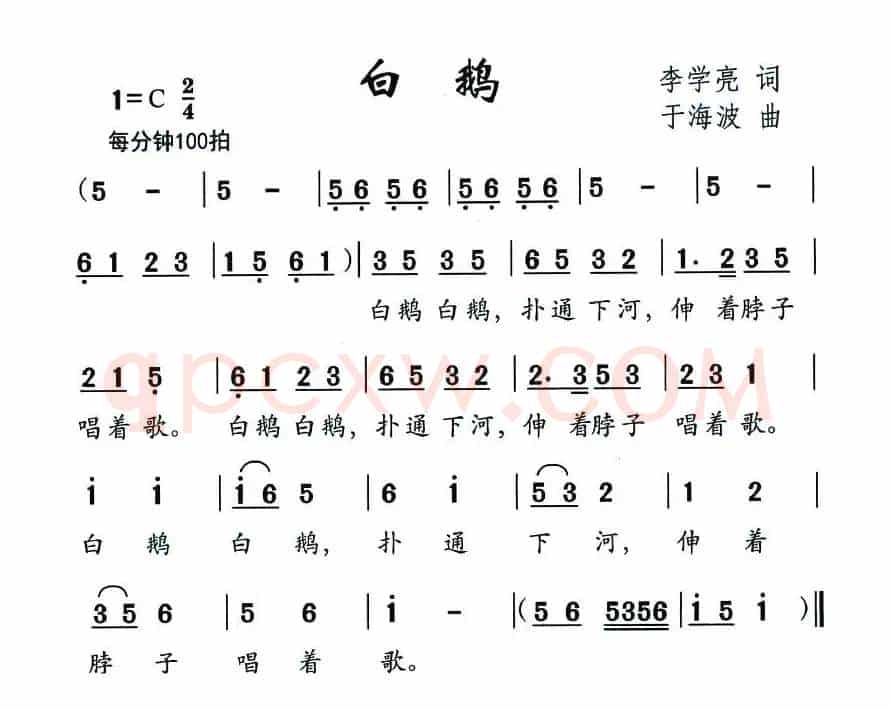 白 鹅
1=C 2/4
李学亮 词
每分钟100拍
于海波 曲
(5 - | 5 - | 5̣6̣ 5̣6̣ | 5̣6̣ 5̣6̣ | 5 - | 5 - |
6̣1 23 | 15̣ 6̣1 )| 35 35 | 65 32 | 1· 235 |
白鹅 白鹅, 扑通 下河, 伸 着脖子
21 5̣ | 6̣1 23 | 65 32 | 2· 353 | 23 1 |
唱着 歌。 白鹅 白鹅, 扑通 下河, 伸 着脖子 唱着 歌。
i i | i6 5 | 6 i | 53 2 | 1 2 |
白 鹅 白 鹅, 扑 通 下 河, 伸 着
35 6 | 5 6 | i - |(56 5356 | i5 i )‖
脖 子 唱 着 歌。
qpcxw.COM